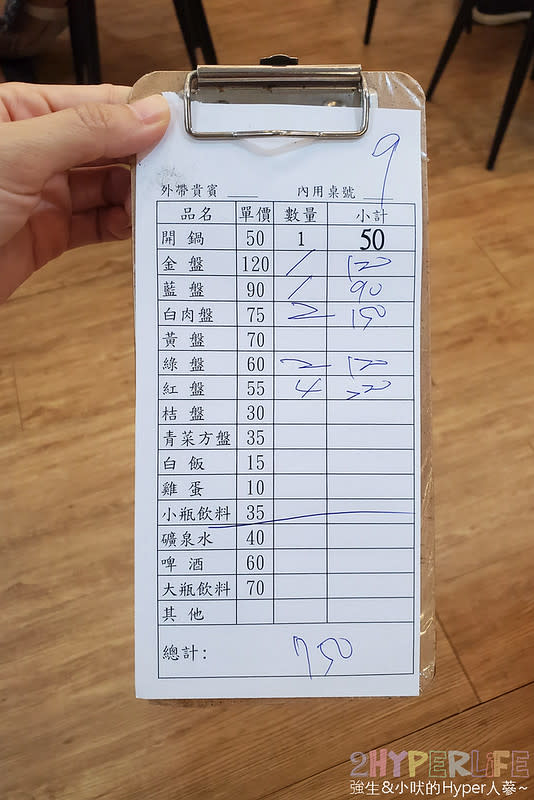 9
外帶貴賓 ____ 內用桌號 ____
品名 單價 數量 小計
開鍋 50 1 50
金盤 120 / 120
藍盤 90 / 90
白肉盤 75 2 150
黃盤 70
綠盤 60 2 120
紅盤 55 4 220
桔盤 30
青菜方盤 35
白飯 15
雞蛋 10
小瓶飲料 35
礦泉水 40
啤酒 60
大瓶飲料 70
其他
總計: 750
2HYPERLiFE
強生&小吠的Hyper人蔘~